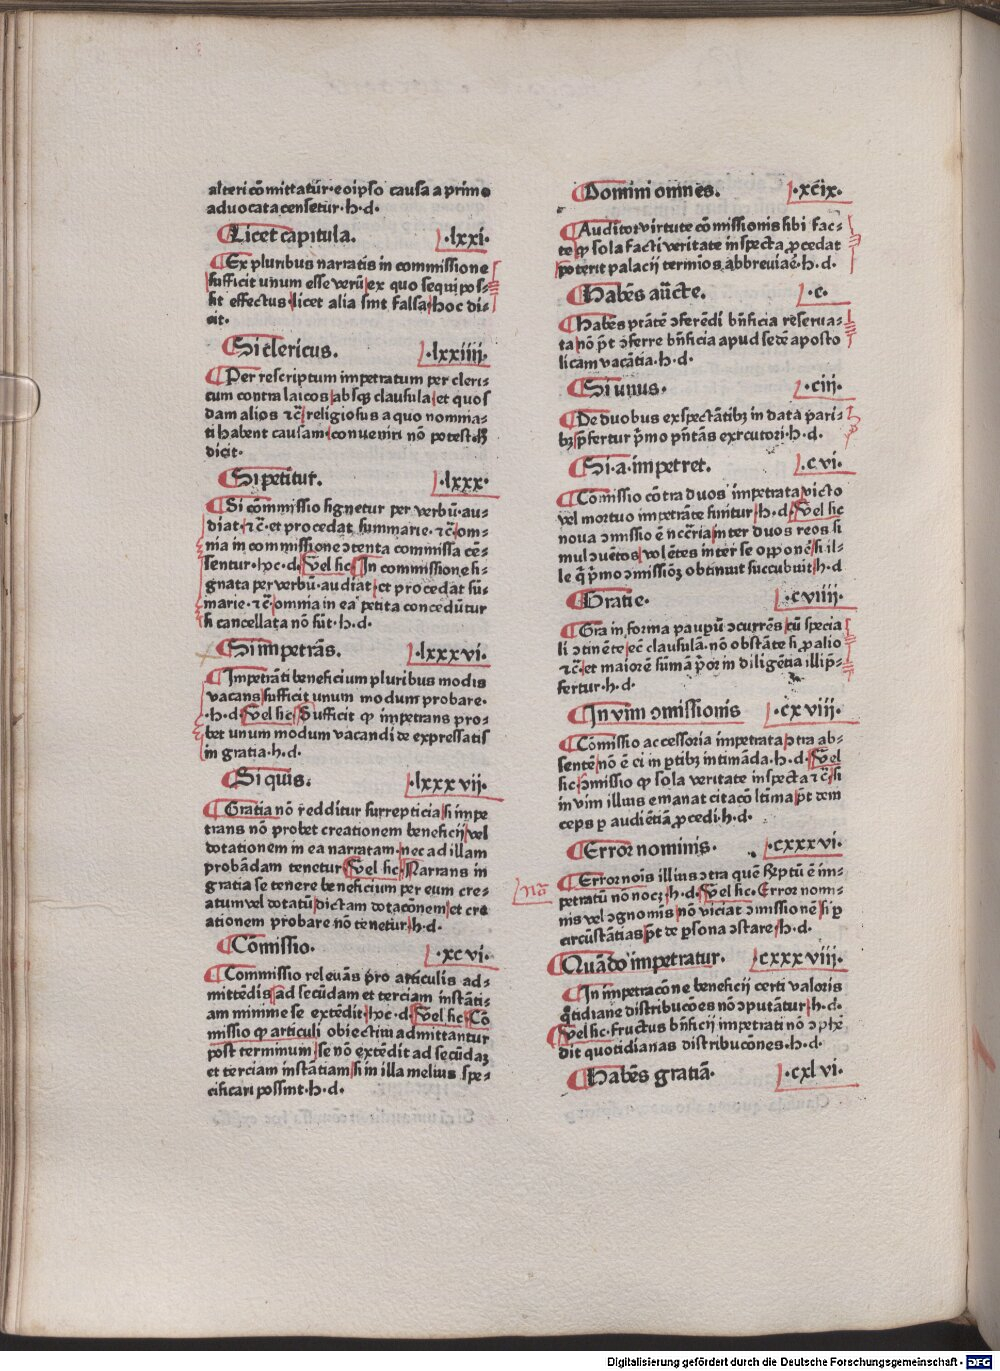 alteri cōmittatur·eoipso causa a primo
aduocata censetur·h·d·
¶Licet capitula. ·lxxi·
¶Ex pluribus narratis in commissione
sufficit unum esse verū ex quo sequi pos⸗
sit effectus licet alia sint falsa hoc di⸗
cit·
¶Si clericus. ·lxxiiii·
¶Per rescriptum impetratum per cleri⸗
cum contra laicos absq; clausula et quos
dam alios ⁊c̄ religiosus a quo nomina⸗
ti habent causam conueniri nō potest·h̄
dicit·
¶Si petitur. ·lxxx·
¶Si cōmissio signetur per verbū·au⸗
diat·⁊c̄·et procedat summarie·⁊c̄ om⸗
nia in commissione ↄtenta commissa cē⸗
sentur·hoc·d·Vel sic ¶In commissione si⸗
gnata per verbū·audiat et procedat sū⸗
marie·⁊c̄ omnia in ea petita concedūtur
si cancellata nō sūt·h·d·
¶Si impetrās. ·lxxxvi·
¶Impetrāti beneficium pluribus modis
vacans sufficit unum modum probare·
·h·d·Vel sic Sufficit ꝙ impetrans pro⸗
bet unum modum vacandi de expressatis
in gratia·h·d·
¶Si quis. ·lxxxvii·
¶Gratia nō redditur surrepticia si impe
trans nō probet creationem beneficii vel
dotationem in ea narratam·nec ad illam
probādam tenetur Vel sic Narrans in
gratia se tenere beneficium per eum cre⸗
atum vel dotatū dictam dotacōnem et cre
ationem probare nō tenetur·h·d·
¶Cōmissio. ·xcvi·
¶Commissio releuās pro articulis ad⸗
mittēdis ad secūdam et terciam instāti⸗
am minime se extēdit·hoc·d·Vel sic Cō
missio ꝙ articuli obiectiui admittantur
post terminum se nō extēdit ad secūdaꝫ
et terciam instātiam si in illa melius spe⸗
cificari possint·h·d·
¶Domini omnes. ·xcix·
¶Auditor virtute cōmissionis sibi fac⸗
te ꝙ sola facti veritate inspecta ꝓcedat
poterit palacij terminos abbreuiare·h·d·
¶Habēs auctē. ·c·
¶Habēs ptātē ↄferēdi bn̄ficia reserua⸗
ta nō pt̄ ↄferre bn̄ficia apud sedē aposto
licam vacātia·h·d·
¶Si unus. ·ciii·
¶De duobus exspectātibꝫ in data pari⸗
bꝫ p̄fertur pᷓmo pn̄tās exrcutori·h·d·
¶Si·a·impetret. ·cvi·
¶Cōmissio cōtra duos impetrata victo
vel mortuo impetrāte finitur·h·d·Vel sic
noua ↄmissio ē nc̄cria inter duos reos si
mul ↄuētos volētes inter se opponē si il⸗
le q̄ pᷓmo ↄmissiōꝫ obtinuit succubuit·h·d
¶Gratie. ·cviiii·
¶Gra in forma paupuꝫ ↄcurrēs cū specia
li ↄtinēte ec̄ clausulā·nō obstāte si ꝓ alio
⁊c̄ et maiorē sumā p̄or in diligētia illi p̄⸗
fertur·h·d·
¶In vim ↄmissionis ·cxviii·
¶Cōmissio accessoria impetrata ↄtra ab⸗
sentē nō ē ci in ptibꝫ intimāda·h·d·Vel
sic ↄmissio ꝙ sola veritate inspecta ⁊c̄ si
in vim illius emanat citacō ltima pt̄ dem
ceps ꝑ audiētiā ꝓcedi·h·d·
¶Error nominis. ·cxxxvi·
¶Error nois illius ↄtra quē rescptū ē im⸗
petratū nō nocꝫ·h·d·Vel sic·Error nomi⸗
nis vel ↄgnomīs nō viciat ↄmissionē si ꝑ
circūstātias pt̄ de ꝑsona ↄstare·h·d·
¶Quādo impetratur. ·cxxxviii·
¶In impetracōne beneficii certi valoris
q̄tidiane distribucōes nō ↄputātur·h·d·
Vel sic·fructus bn̄ficij impetrati nō ↄphē
dit quotidianas distribucōnes·h·d·
¶Habēs gratiā· ·cxlvi·
nōa
Digitalisierung gefördert durch die Deutsche Forschungsgemeinschaft · DFG